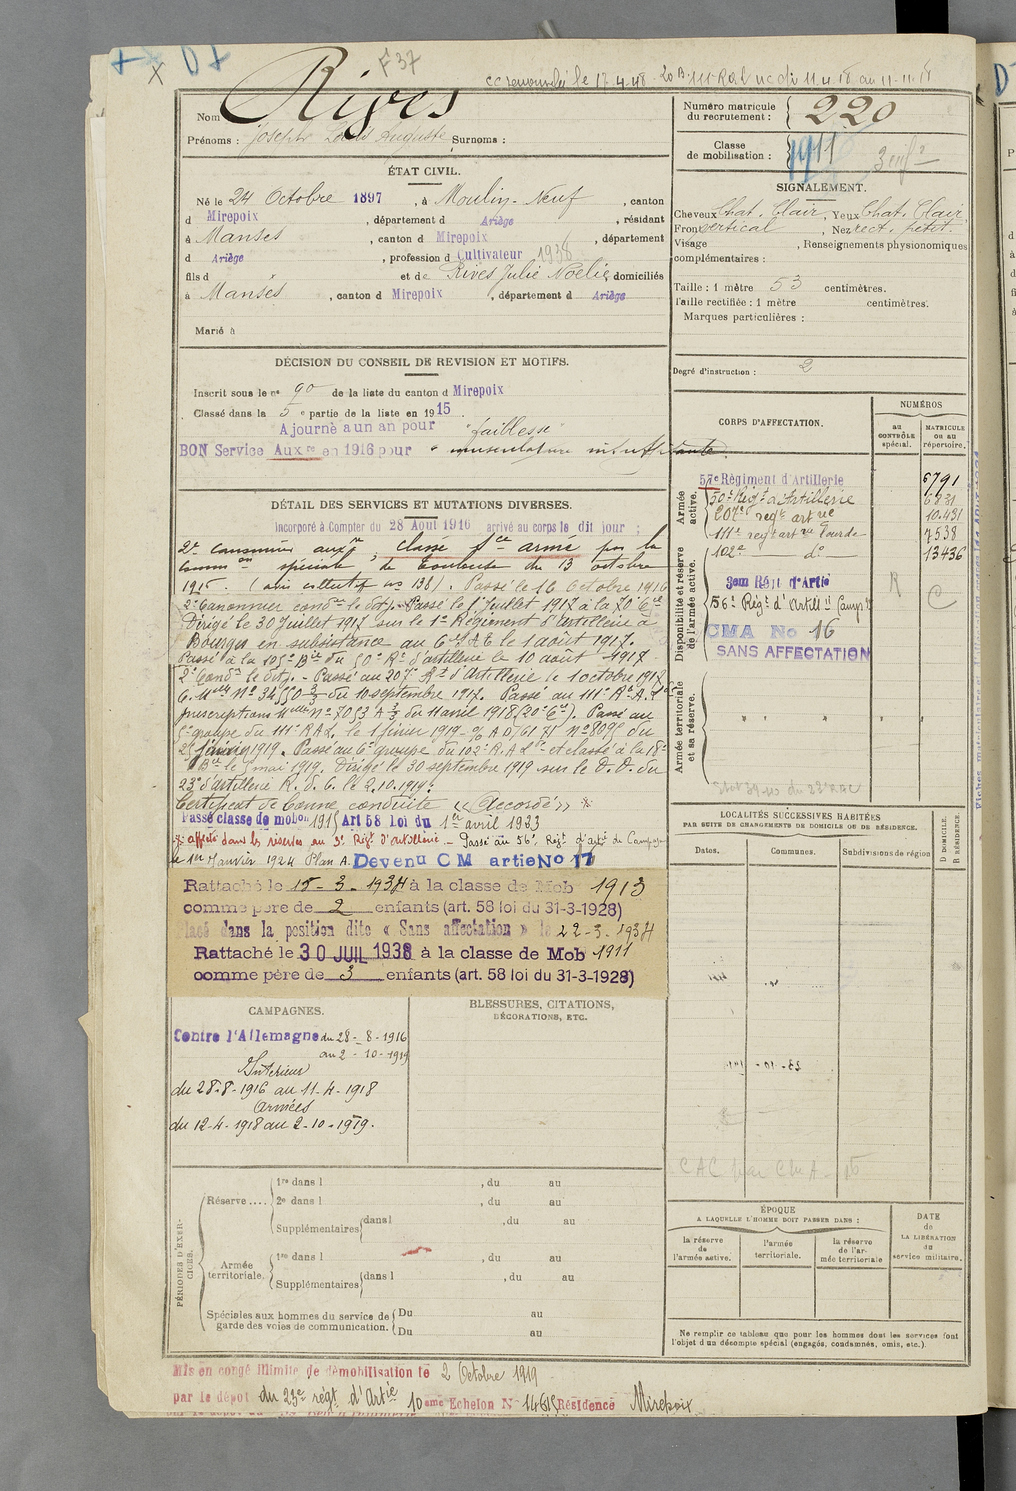 F 37
cc renouvelé le 17.4.48 - 20 B. 111 R.a.l. uc du 11.4.18 au 11-11-18
Nom Rives
Prénoms : Joseph Louis Auguste Surnoms :
Numéro matricule du recrutement : 220
Classe de mobilisation : 1911
ÉTAT CIVIL.
Né le 24 Octobre 1897, à Moulin-Neuf, canton
d Mirepoix, département d Ariège, résidant
à Manses, canton d Mirepoix, département
d Ariège, profession d Cultivateur 1938
fils d x et de Rives Julie Noélie, domiciliés
à Manses, canton d Mirepoix, département d Ariège
Marié à
SIGNALEMENT.
Cheveux Chat. Clair, Yeux Chat. Clair,
Front vertical, Nez rect. petit.
Visage , Renseignements physionomiques
complémentaires :
Taille : 1 mètre 53 centimètres.
Taille rectifiée : 1 mètre centimètres.
Marques particulières :
Degré d'instruction : 2
DÉCISION DU CONSEIL DE REVISION ET MOTIFS.
Inscrit sous le n° 90 de la liste du canton d Mirepoix
Classé dans la 5e partie de la liste en 1915.
Ajourné a un an pour "faiblesse"
BON Service Auxre en 1916 pour "musculature insuffisante"
CORPS D'AFFECTATION.
NUMÉROS
au CONTRÔLE spécial.
MATRICULE ou au répertoire.
Armée active.
57e Régiment d'Artillerie 6791
50e Régt d'Artillerie 6831
207e régt artrie 10.431
111e régt artrie lourde 7538
Disponibilité et réserve de l'armée active.
102e — do — 13436
3em Rég't d'Artie R
56e Régt d'Artillie Campne C
CMA No 16
SANS AFFECTATION
Armée territoriale et sa réserve.
DÉTAIL DES SERVICES ET MUTATIONS DIVERSES.
Incorporé à Compter du 28 Aout 1916 arrivé au corps le dit jour ;
2e canonnier auxre, classé sce armé par la
Common spéciale de Toulouse du 13 octobre
1916. (avis collectif no 138). Passé le 16 Octobre 1916
2e Canonnier condr le dit j. Passé le 1 Juillet 1917 à la 70e Bie
Dirigé le 30 Juillet 1917 sur le 1er Régiment d'artillerie à
Bourges en subsistance au le 1 août 1917.
Passé à la 105e Bie du 50e Rt d'artillerie le 10 août 1917
2e Condr le dit j. - Passé au 207e Rt d'Artillerie le 1 octobre 1917
du 10 septembre 1917. Passé au 111e Rt A.L.
prescriptions Mlles no 7053 A 3/3 du 11 avril 1918 (20e Bie). Passé au
5e groupe du 111e RAL le 1 février 1919 - du
25 février 1919. Passé au 6e groupe du 102e R.A.L. et classé à la 18e
Bie le 5 mai 1919. Dirigé le 30 septembre 1919 sur le D.D. du
23e d'artillerie R.d.C. le 2.10.1919.
Certificat de bonne conduite « Accordé »
Passé classe de mobon 1915 Art 58 loi du 1er avril 1923
affecté dans les réserves au 3e Régt d'Artillerie - Passé au 56e Régt d'artie de Campagne
le 1er Janvier 1924 Plan A. Devenu CM artie No 17
Rattaché le 15-3-1934 à la classe de Mob 1913
comme père de 2 enfants (art. 58 loi du 31-3-1928)
lacé dans la position dite « Sans affectation » le 22-3-1934
Rattaché le 30 JUIL 1938 à la classe de Mob 1911
comme père de 3 enfants (art. 58 loi du 31-3-1928)
LOCALITÉS SUCCESSIVES HABITÉES
PAR SUITE DE CHANGEMENTS DE DOMICILE OU DE RÉSIDENCE.
Dates.
Communes.
Subdivisions de région
D DOMICILE.
R RÉSIDENCE.
CAMPAGNES.
Contre l'Allemagne du 28-8-1916
au 2-10-1919
Intérieur
du 28-8-1916 au 11-4-1918
Armées
du 12-4-1918 au 2-10-1919.
BLESSURES, CITATIONS,
DÉCORATIONS, ETC.
PÉRIODES D'EXERCICES.
Réserve ....
1re dans l , du au
2e dans l , du au
Supplémentaires dans l , du au
Armée territoriale.
1re dans l , du au
Supplémentaires dans l , du au
Spéciales aux hommes du service de garde des voies de communication.
Du au
Du au
ÉPOQUE
A LAQUELLE L'HOMME DOIT PASSER DANS :
la réserve de l'armée active.
l'armée territoriale.
la réserve de l'armée territoriale
DATE de LA LIBÉRATION du service militaire.
Ne remplir ce tableau que pour les hommes dont les services font
l'objet d'un décompte spécial (engagés, condamnés, omis, etc.).
Mis en congé illimité de démobilisation le 2 Octobre 1919
par le dépôt du 23e régt d'Artie 10eme Echelon No 14615 Résidence Mirepoix